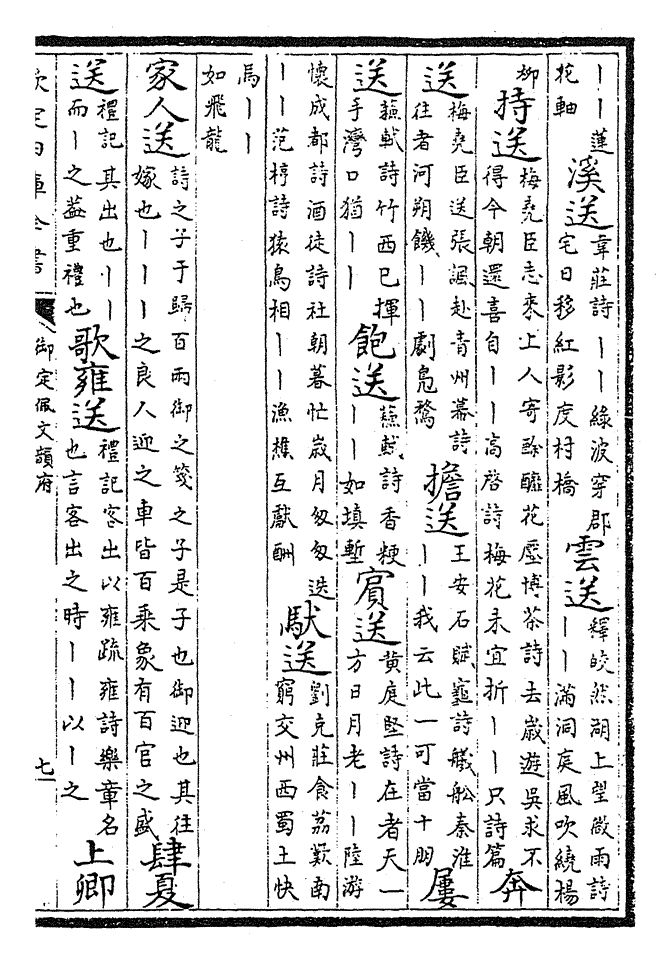 丨丨蓮
花軸
溪送
韋莊詩丨丨緑波穿郡
宅日移紅影度村橋
雲送
釋皎然湖上望微雨詩
丨丨滿洞庭風吹繞楊
柳
持送
梅堯臣志來上人寄酴醾花壓塼茶詩去歲遊吳求不
得今朝還喜自丨丨高啓詩梅花未宜折丨丨只詩篇
奔
送
梅堯臣送張諷赴青州幕詩
往者河朔饑丨丨劇鳧鶩
擔送
王安石賦龜詩艤舩秦淮
丨丨我云此一可當十朋
屢
送
蘇軾詩竹西已揮
手灣口猶丨丨
飽送
蘇軾詩香粳
丨丨如填塹
賓送
黄庭堅詩在者天一
方日月老丨丨陸游
懷成都詩酒徒詩社朝暮忙歲月匆匆迭
丨丨范梈詩猿鳥相丨丨漁樵互獻酬
馱送
劉克莊食荔歎南
窮交州西蜀土快
馬丨丨
如飛龍
家人送
詩之子于歸百兩御之箋之子是子也御迎也其往
嫁也丨丨丨之良人迎之車皆百乘象有百官之盛
肆夏
送
禮記其出也丨丨
而丨之葢重禮也
歌雍送
禮記客出以雍疏雍詩樂章名
也言客出之時丨丨以丨之
上卿
欽定四庫全書
御定佩文韻府
七